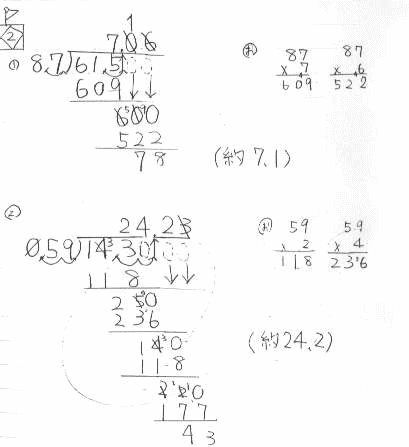 2
① 7.06 1
8.7)61.500
609
600
522
78
(約7.1)
87
× 7
609
87
× 6
522
② 24.23
0.59)14.3000
118
250
236
140
118
220
177
43
59
× 2
118
59
× 4
236
(約24.2)